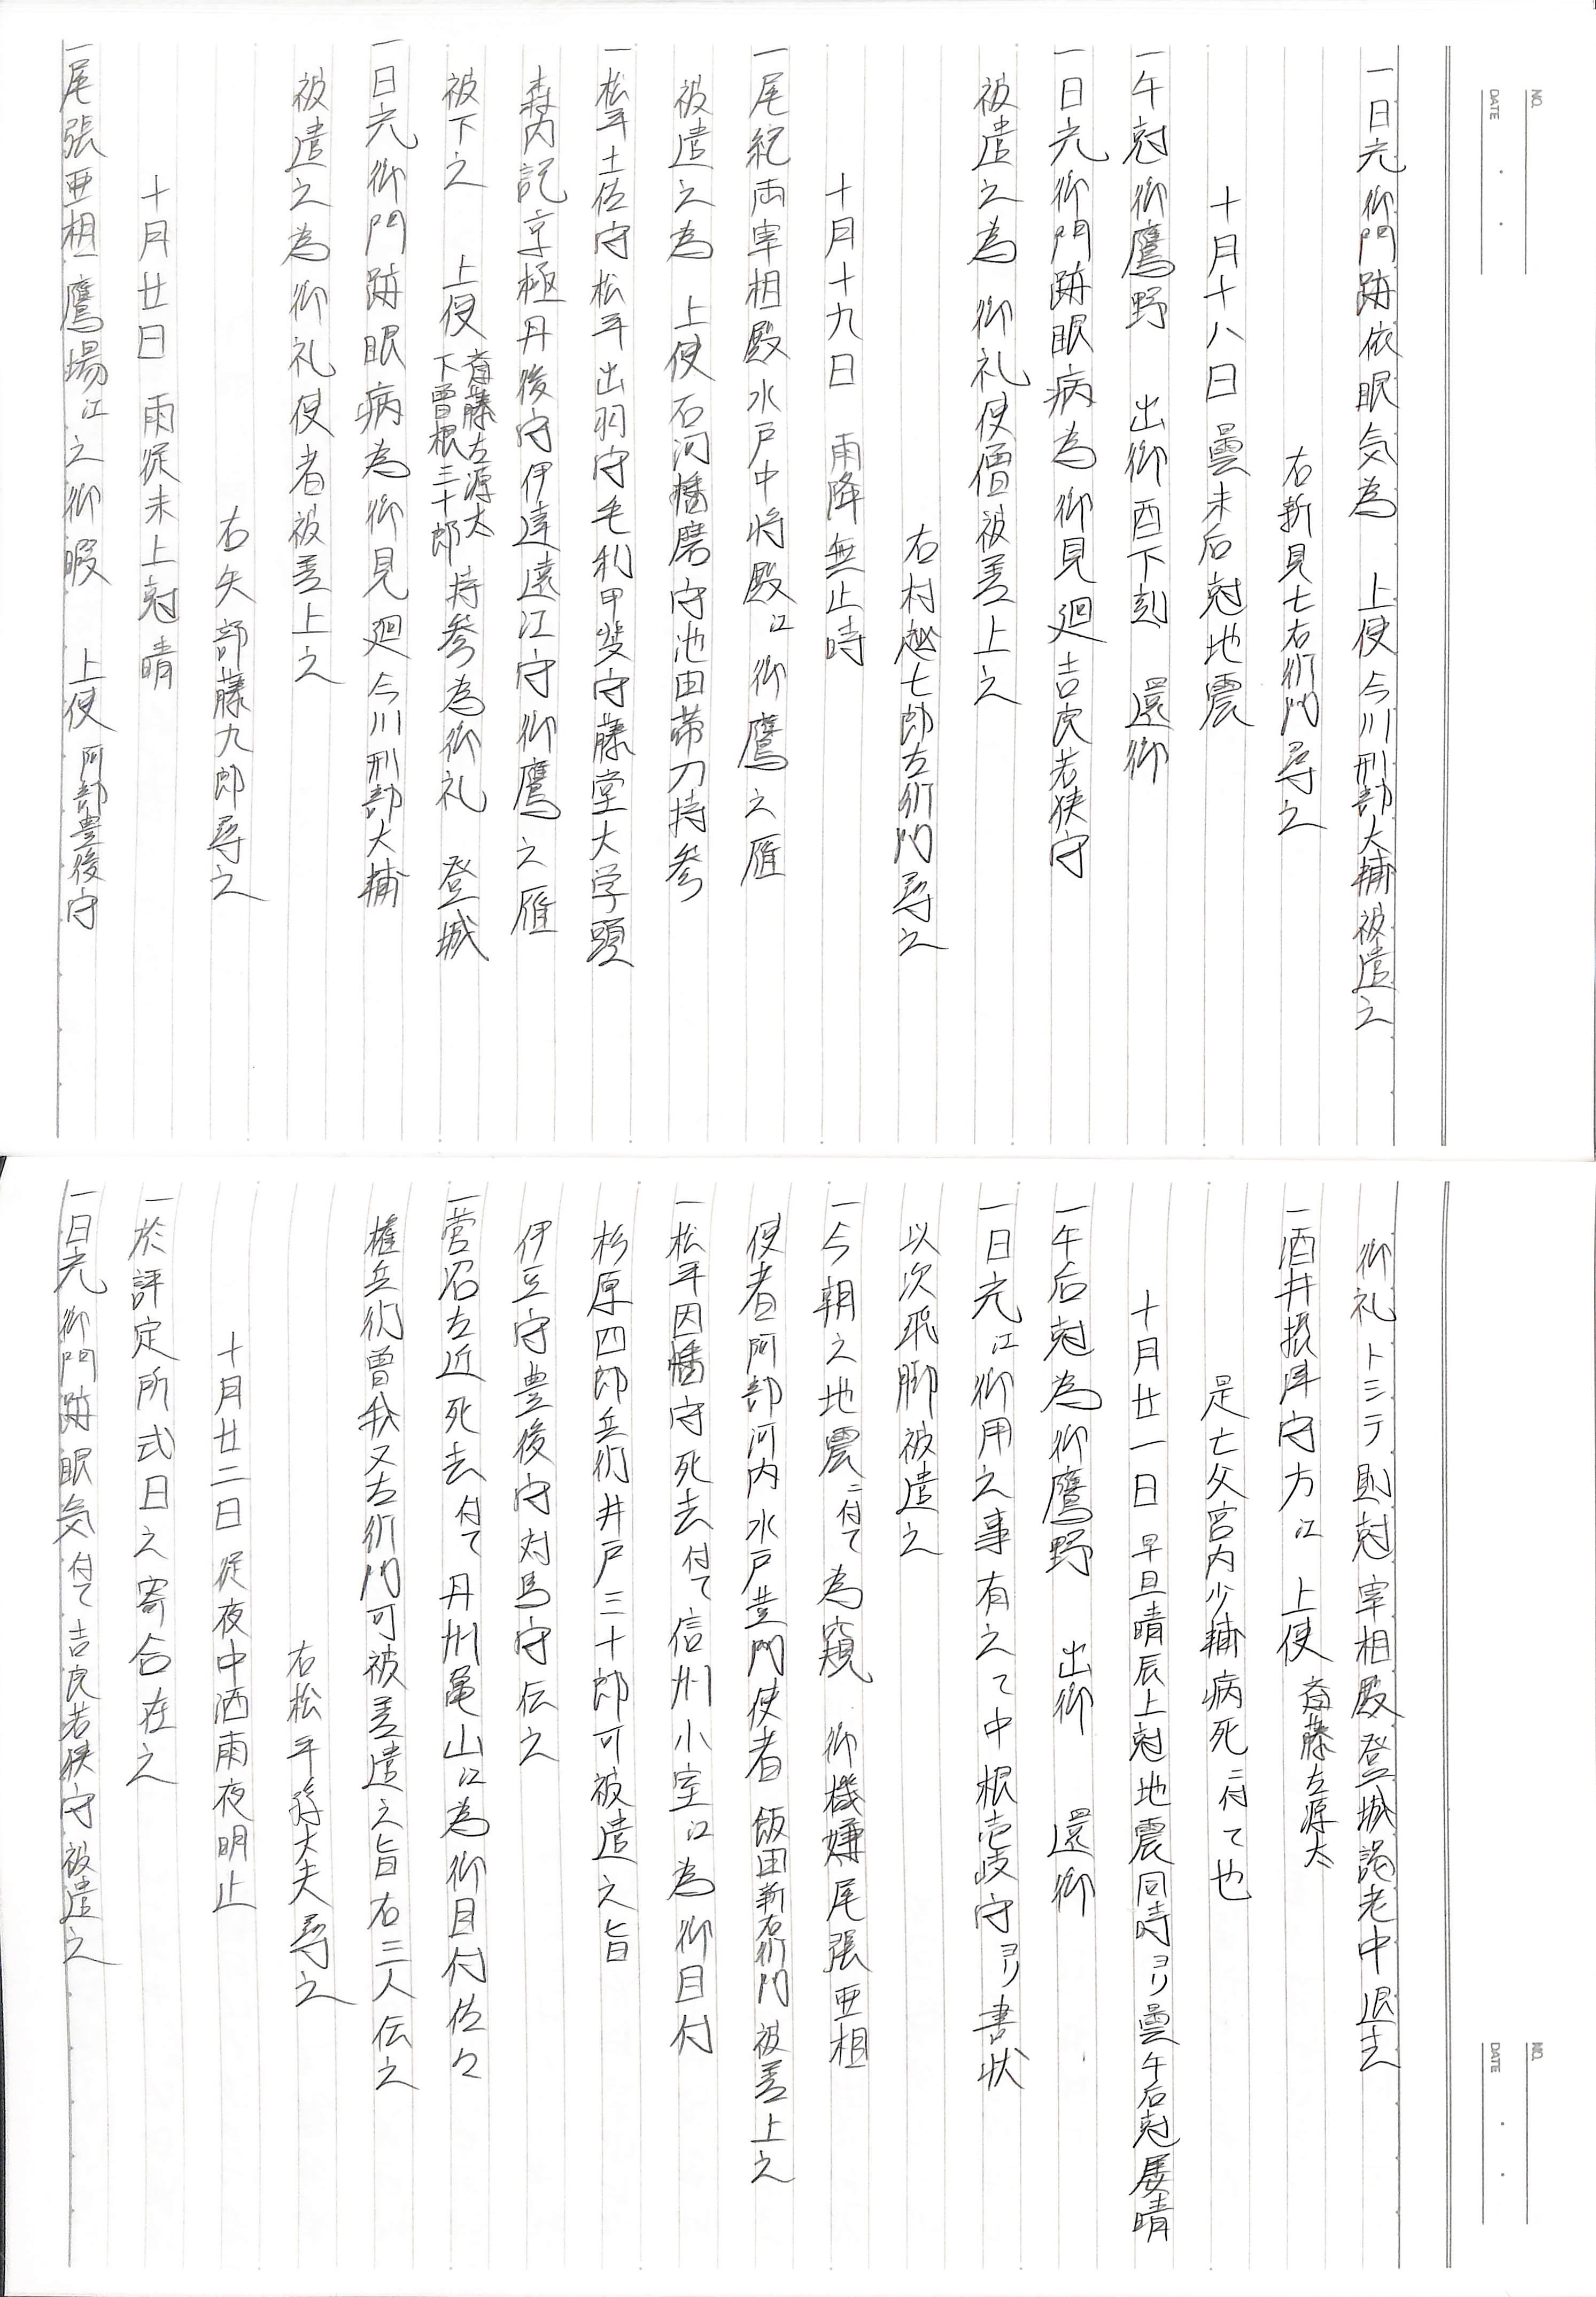 NO.
DATE
一日光御門跡依眼気為　上使今川刑部大輔被遣之
右新見七右衛門尋之
十月十八日　曇未后尅地震
一午尅御鷹野　出御酉下刻　還御
一日光御門跡眼病為御見廻吉良若狭守
被遣之為御礼使僧被差上之
右村越七郎左衛門尋之
十月十九日　雨降無止時
一尾紀両宰相殿水戸中将殿江御鷹之雁
被遣之為　上使石河播磨守池田帯刀持参
一松平土佐守松平出羽守毛利甲斐守藤堂大学頭
森内記京極丹後守伊達遠江守御鷹之雁
被下之　上使斎藤左源太下曽根三十郎持参為御礼　登城
一日光御門跡眼病為御見廻今川刑部大輔
被遣之為御礼使者被差上之
右矢部藤九郎尋之
十月廿日　雨従未上尅晴
一尾張亜相鷹場江之御暇　上使阿部豊後守
御礼トシテ則尅宰相殿登城謁老中退去
一酒井摂津守方江　上使斎藤左源太
是亡父宮内少輔病死ニ付て也
十月廿一日　早旦晴辰上尅地震同時ヨリ曇午后尅属晴
一午后尅為御鷹野　出御　還御
一日光江御用之事有之て中根壱岐守ヨリ書状
以次飛脚被遣之
一今朝之地震ニ付て為窺　御機嫌尾張亜相
使者阿部河内水戸黄門使者飯田新右衛門被差上之
一松平因幡守死去付て信州小室江為御目付
杉原四郎兵衛井戸三十郎可被遣之旨
伊豆守豊後守対馬守伝之
一菅沼左近死去付て丹州亀山江為御目付佐々
権兵衛曽我又左衛門可被差遣之旨右三人伝之
右松平孫大夫尋之
十月廿二日　従夜中洒雨夜明止
一於評定所式日之寄合在之
一日光御門跡眼気付て吉良若狭守被遣之
NO.
DATE